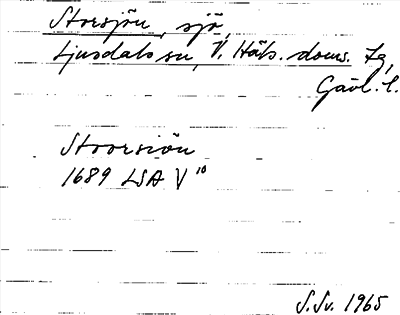 Storsjön, sjö,
Ljusdals sn, V. Häls. doms. tg,
Gävl. l.
Stoorsiön
1689 LSA V¹⁰
S.Sv. 1965